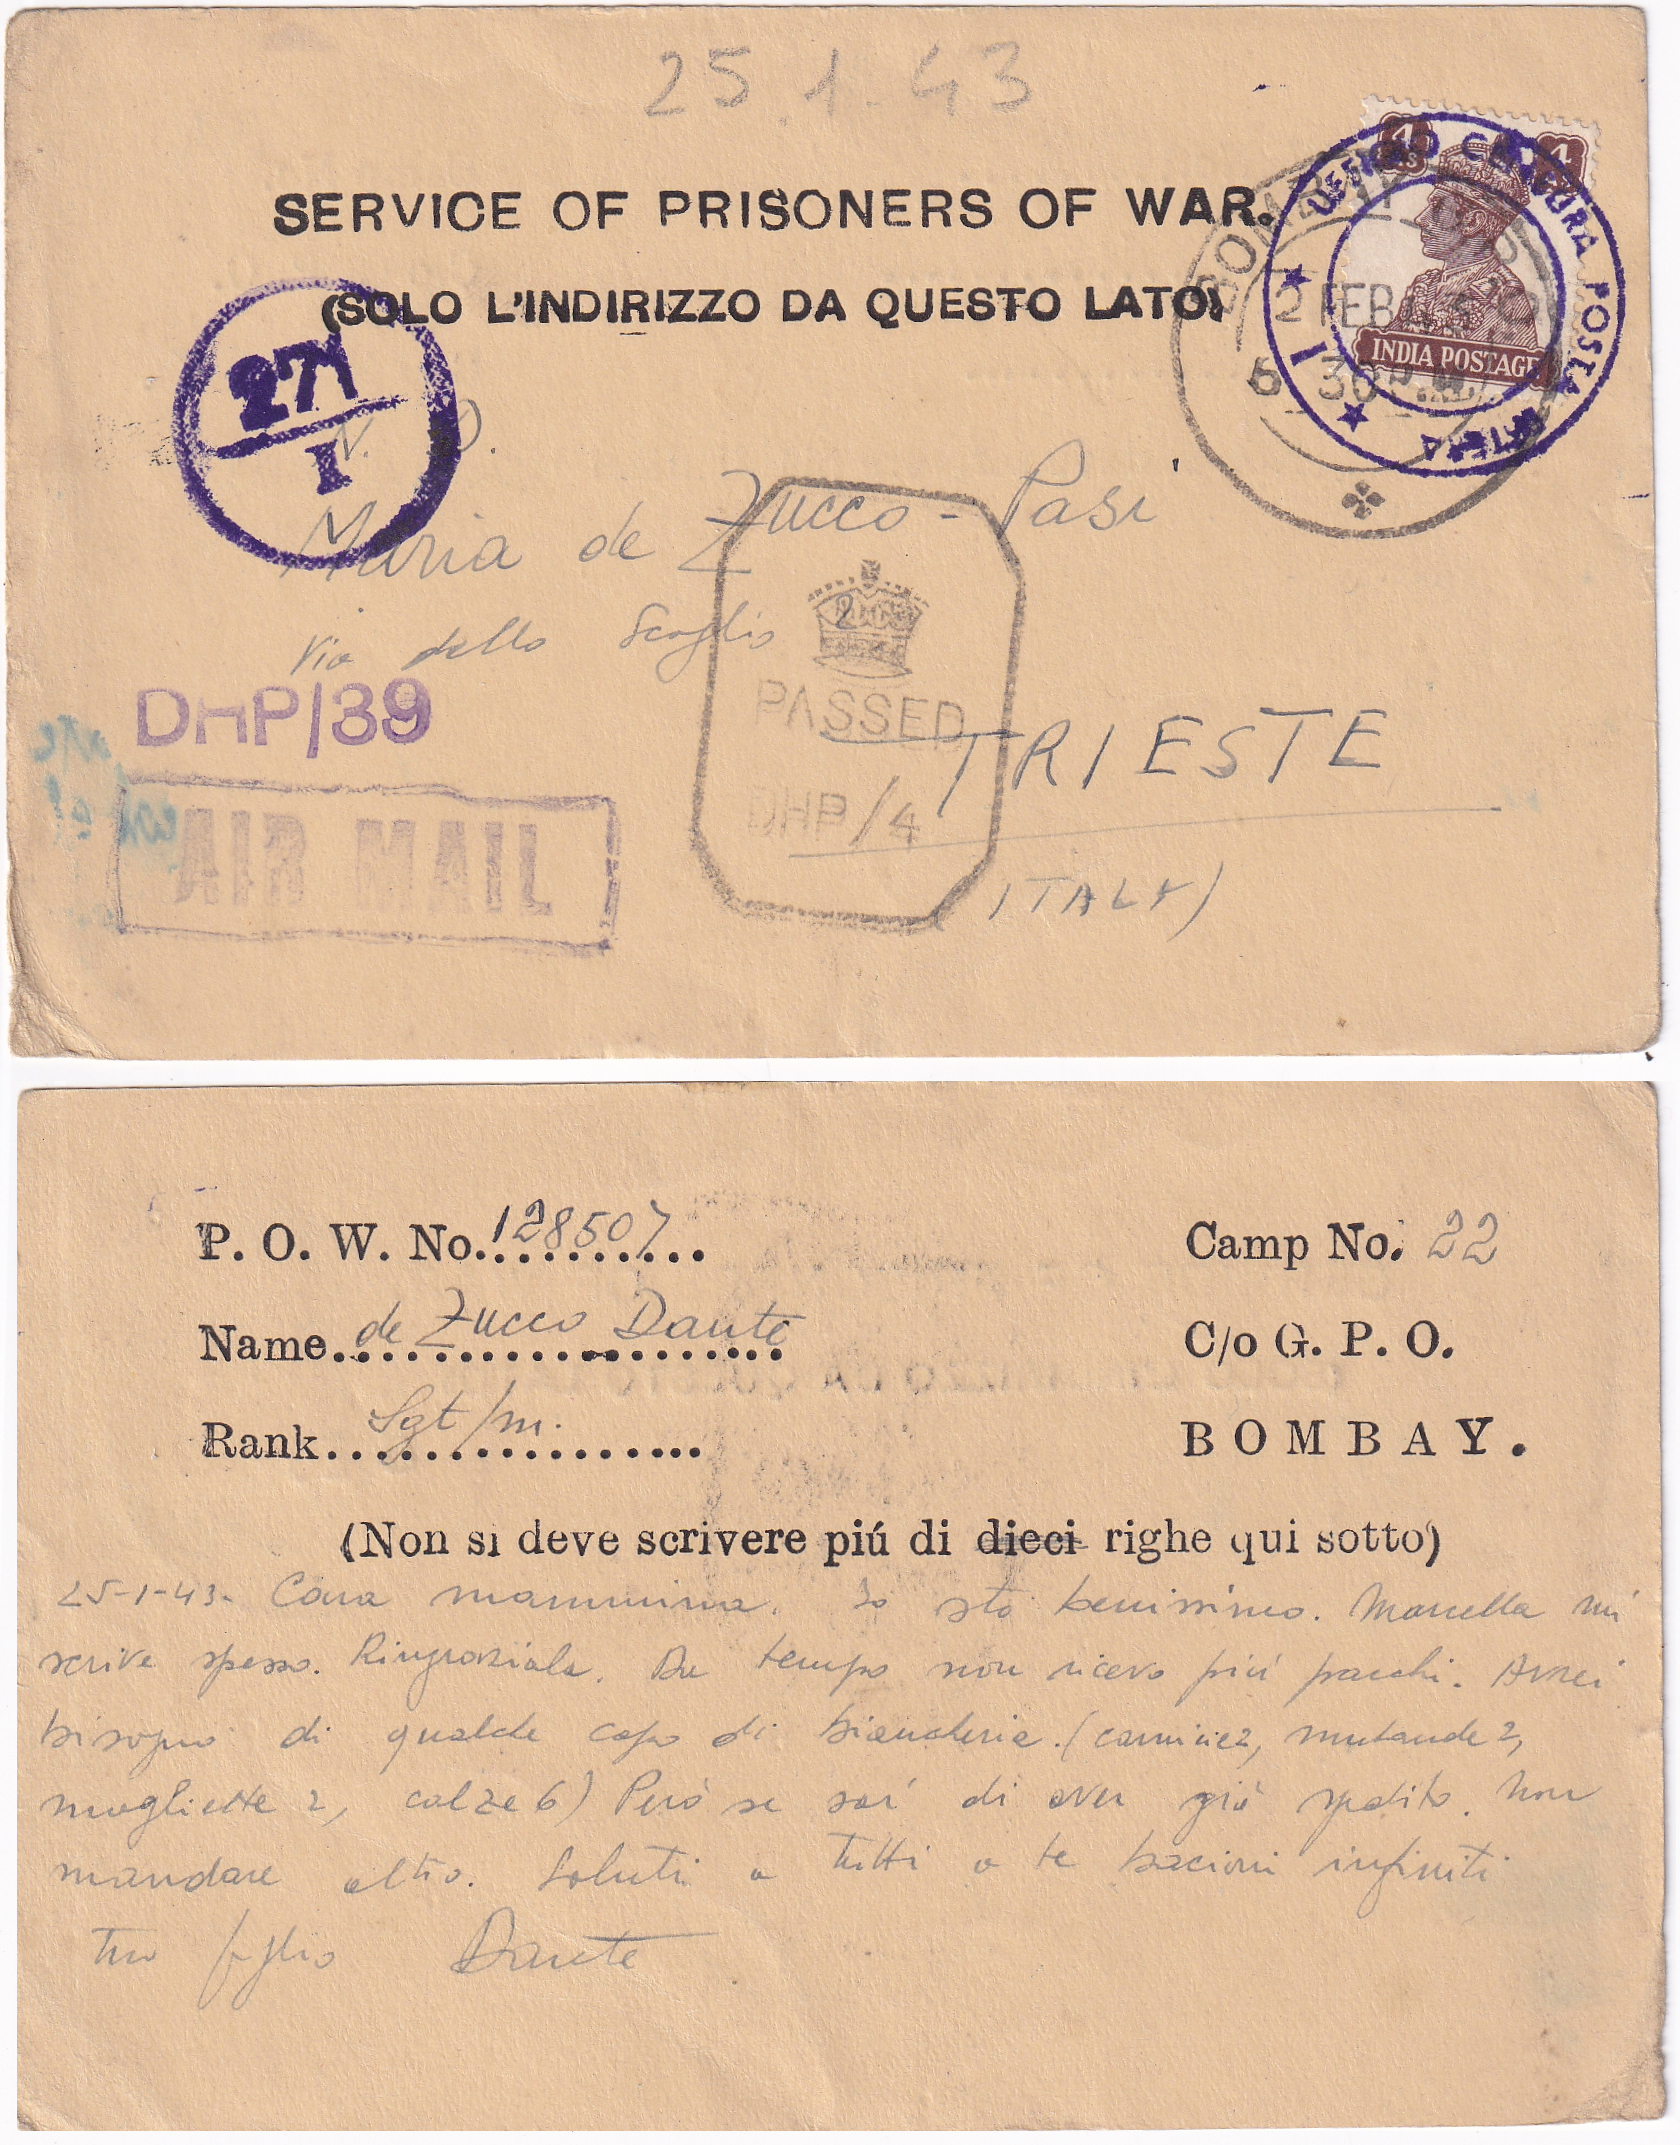 25.1.43
SERVICE OF PRISONERS OF WAR.
(SOLO L'INDIRIZZO DA QUESTO LATO)
4 As
INDIA POSTAGE
UFFICIO CENSURA POSTA ESTERA
BOMBAY
2 FEB 43
6 30 P.M.
271
I
Maria de Zucco - Pasi
Via dello Scoglio 2
DHP/39
PASSED
DHP/4
TRIESTE
ITALY)
AIR MAIL
P. O. W. No. 128507
Camp No. 22
Name de Zucco Dante
C/o G. P. O.
Rank Sgt/m.
BOMBAY.
(Non si deve scrivere piú di dieci righe qui sotto)
25-1-43. Cara mammina. Io sto benissimo. Marcella mi
scrive spesso. Ringraziala. Da tempo non ricevo più pacchi. Avrei
bisogno di qualche capo di biancheria. (camicie 2, mutande 2,
magliette 2, calze 6) Però se sai di aver già spedito. Non
mandare altro. Saluti a tutti a te bacioni infiniti
tuo figlio Dante